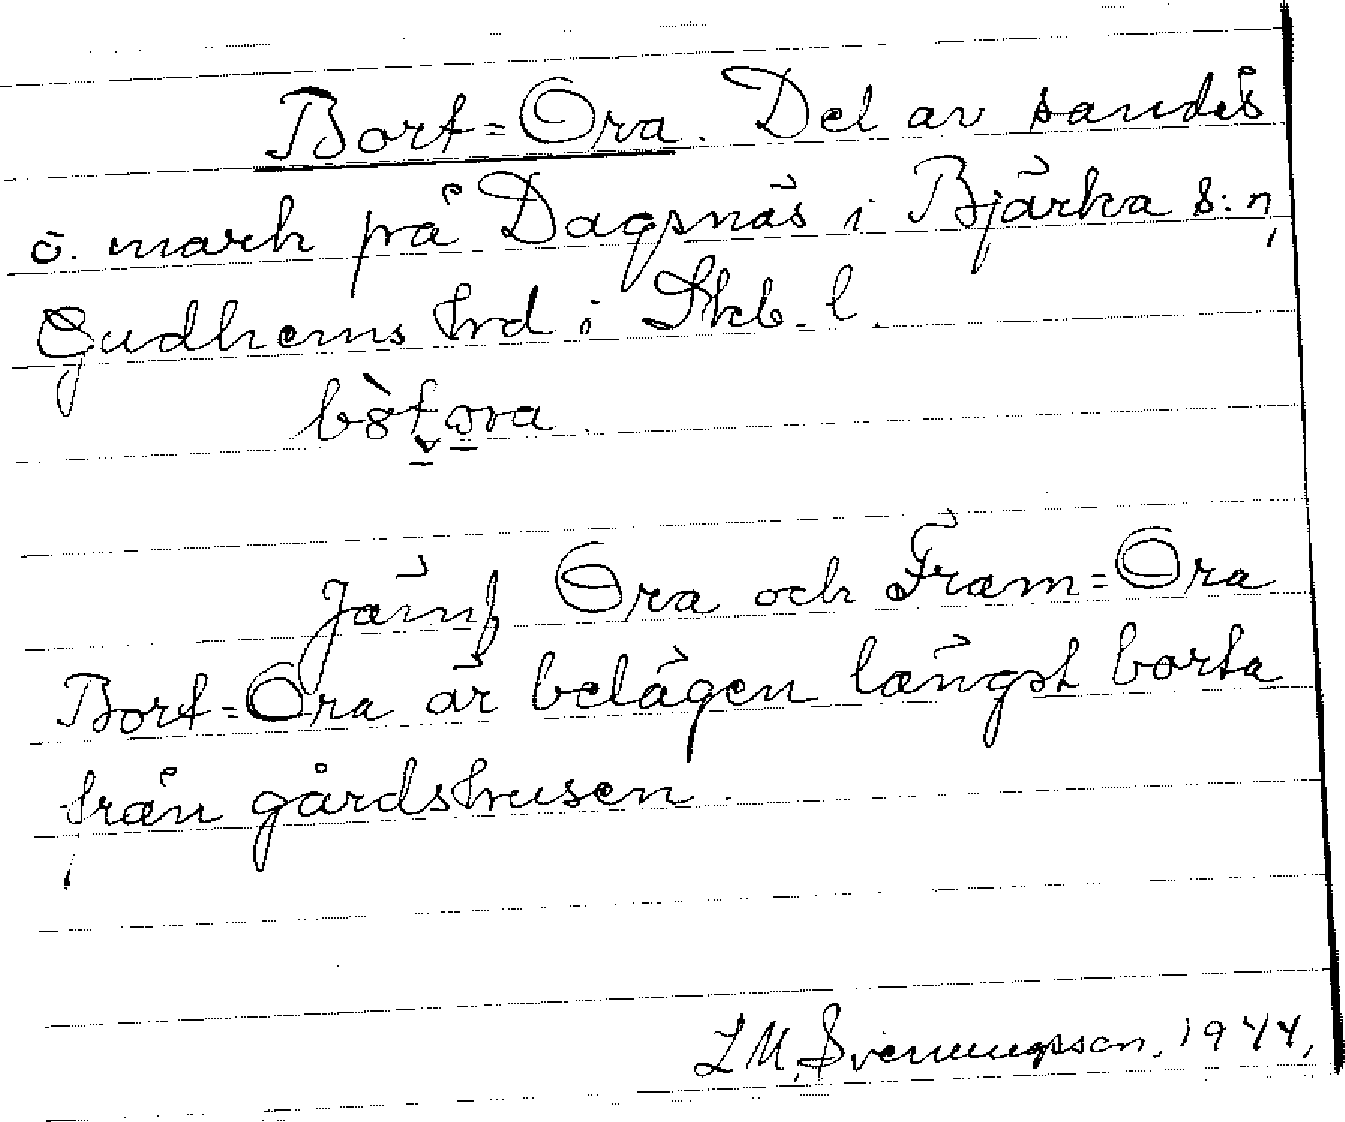 Bort=Ora. Del av sandes
ö. mark på Dagsnäs i Bjärka s:n,
Gudhems hrd i Skb. l.
Jämf Ora och Fram=Ora
Bort=Ora är belägen längst borta
från gårdshusen.
L M, Svenningsson, 1944,